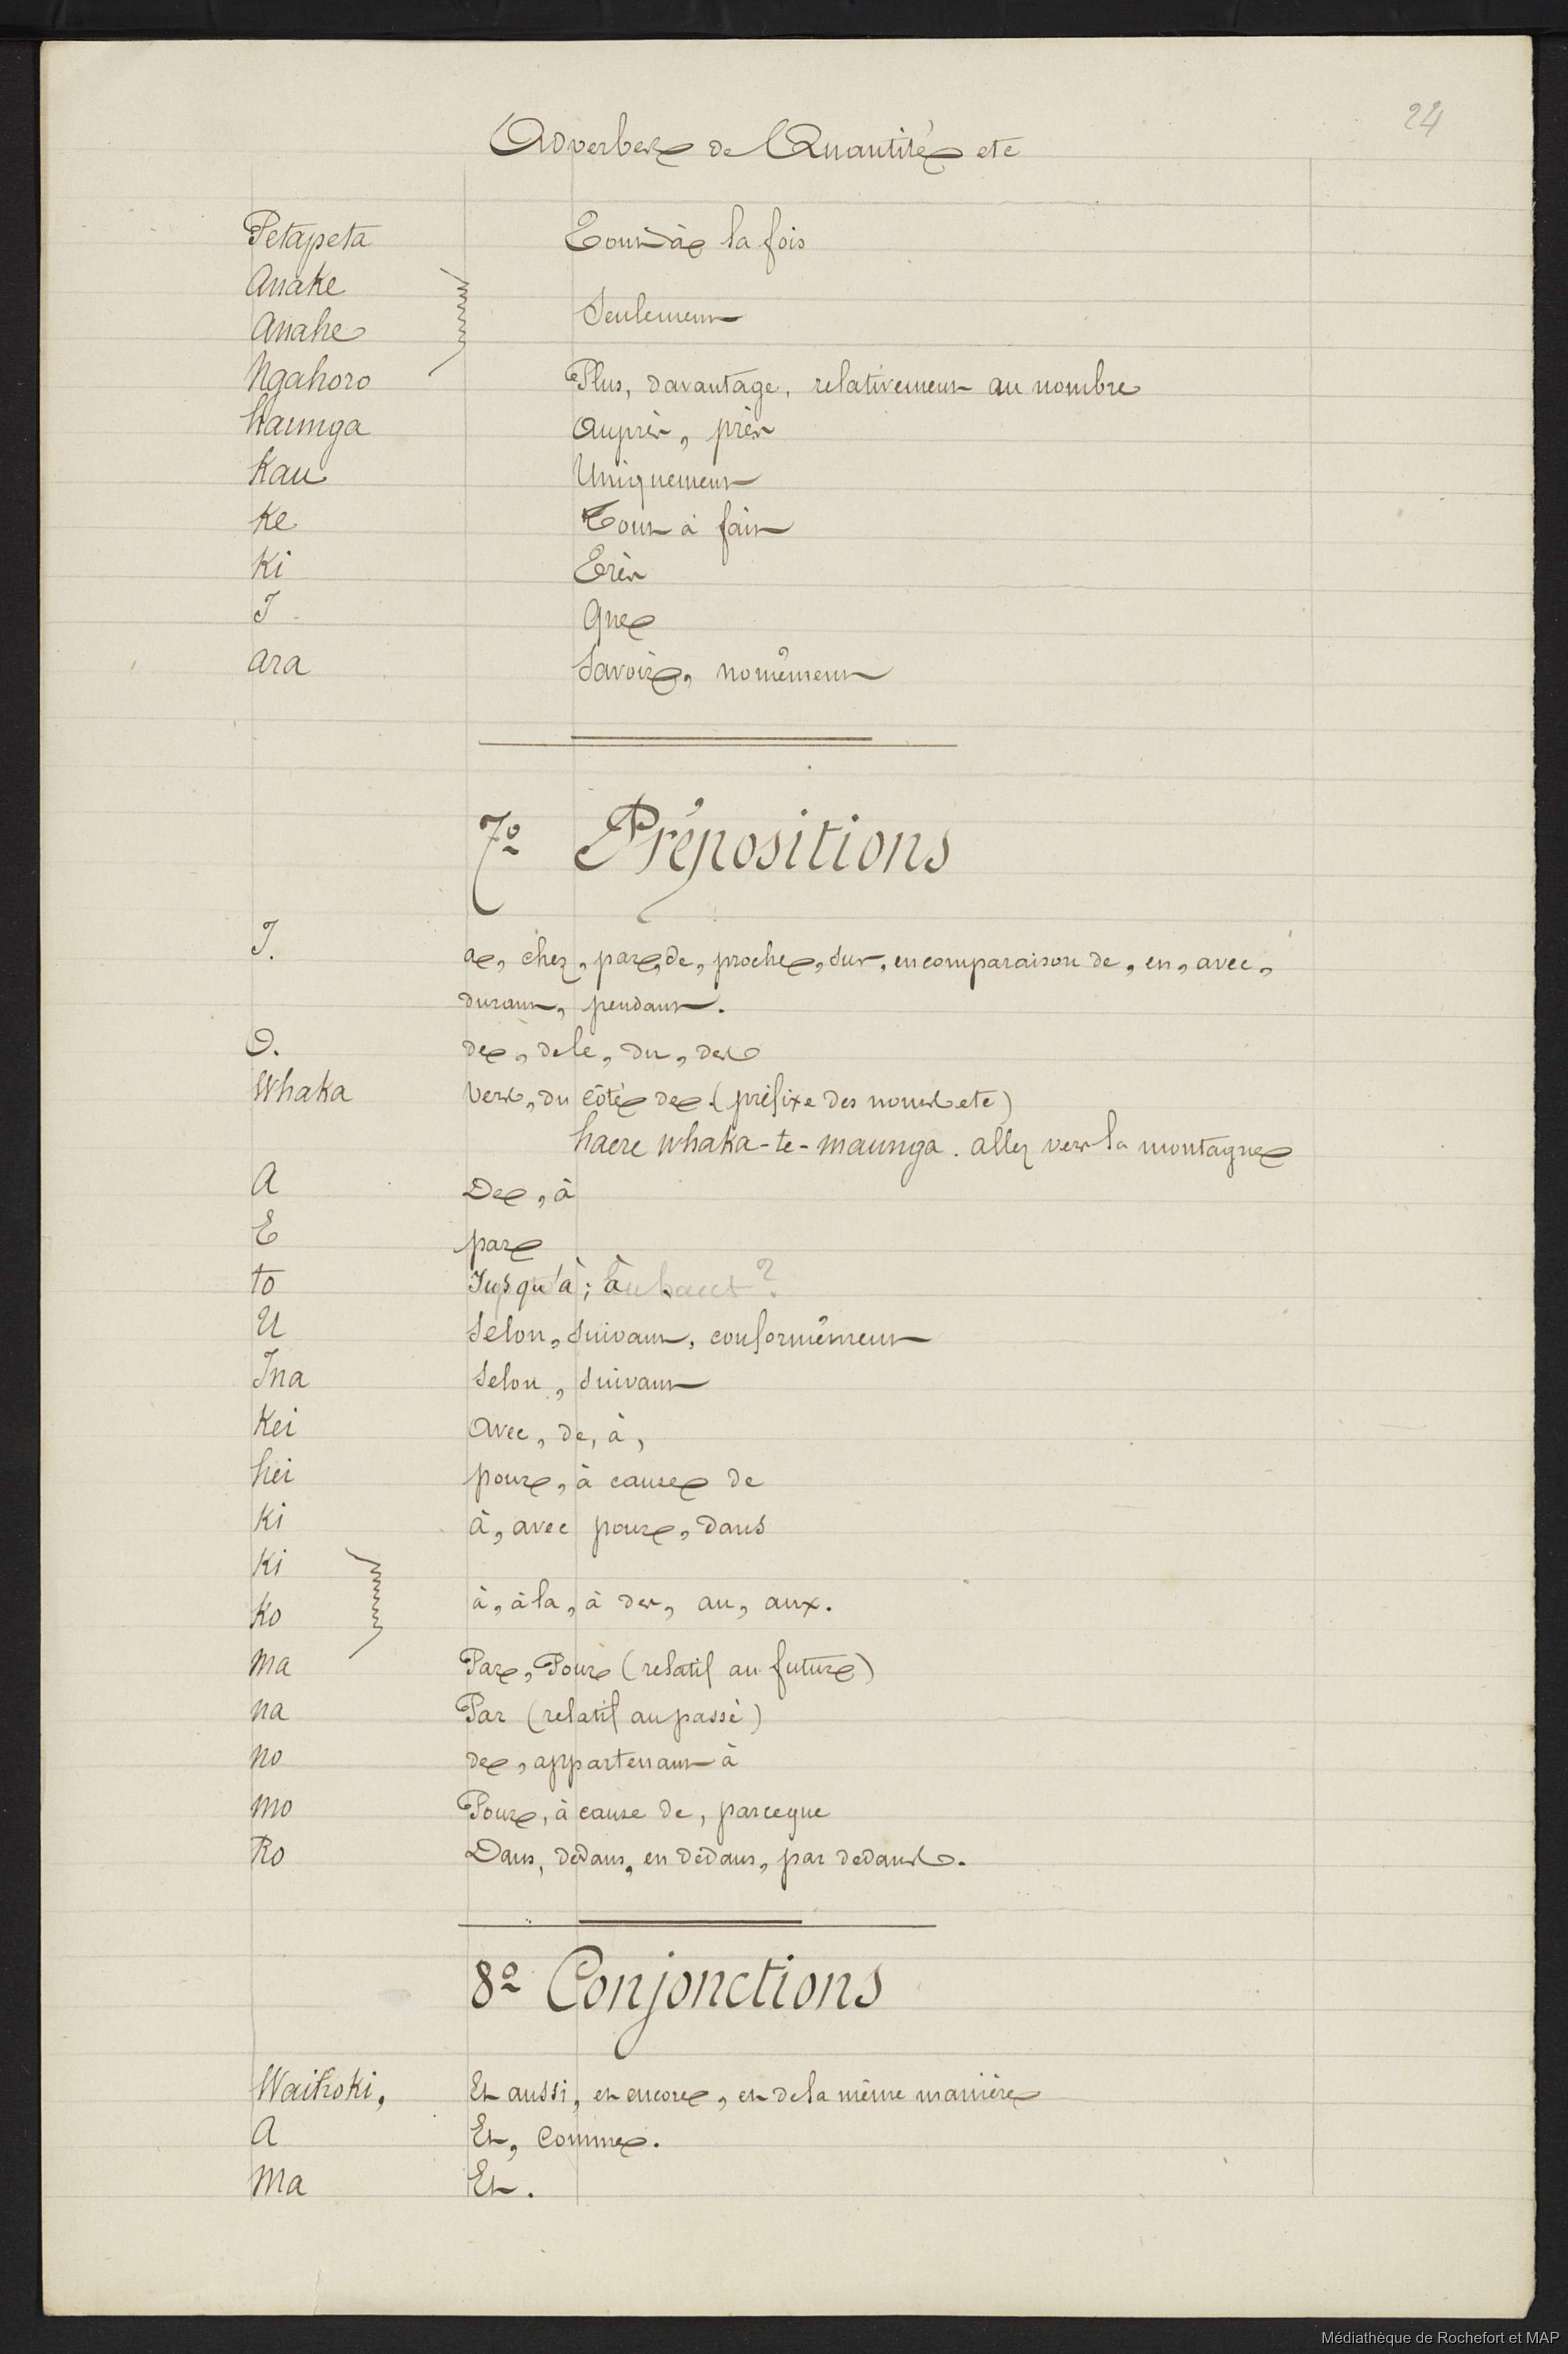 24
Adverbes de Quantité etc
Petapeta Tout à la fois
Anake
Seulement
Anahe
Ngahoro Plus, davantage, relativement au nombre
haunga Auprès, près
Kau Uniquement
Ke Tout à fait
Ki Très
I Que
ara Savoir, nomément
7º Prépositions
I. a, chez, par, de, proche, sur, en comparaison de, en, avec,
durant, pendant.
O. de, de le, du, des
Whaka Vers, du côté de. (préfixe des noms etc)
haere whaka-te-maunga. allez vers la montagne
A De, à
E par
to Jusqu'à; à
U Selon, suivant, conformément
Ina Selon, suivant
Kei Avec, de, à,
hei pour, à cause de
Ki à, avec pour, dans
Ki
à, à la, à des, au, aux.
Ko
ma Par, Pour (relatif au futur)
na Par (relatif au passé)
no de, appartenant à
mo Pour, à cause de, parceque
Ro Dans, dedans, en dedans, par dedans.
8º Conjonctions
Waihoki, Et aussi, et encore, et de la même manière
A Et, Comme.
Ma Et.
Médiathèque de Rochefort et MAP